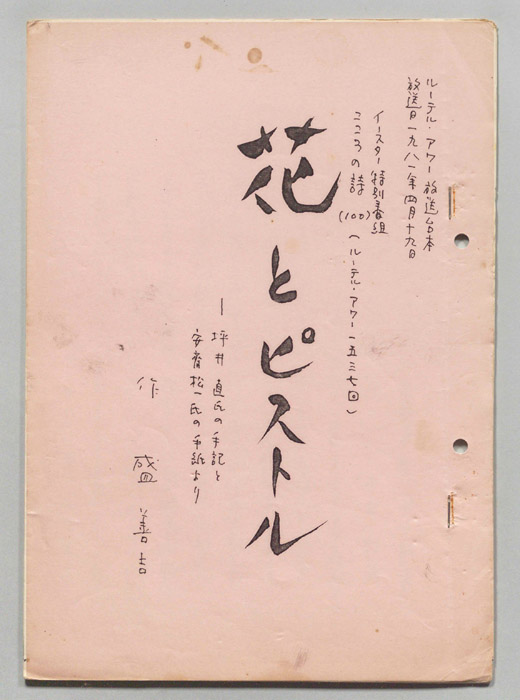 ルーテル・アワー放送台本
放送日 一九八一年四月十九日
イースター特別番組
こころの詩(100)(ルーテル・アワー一五三七回)
花とピストル
— 坪井 直氏の手記と
安斉松一氏の手紙より
作 盛善吉